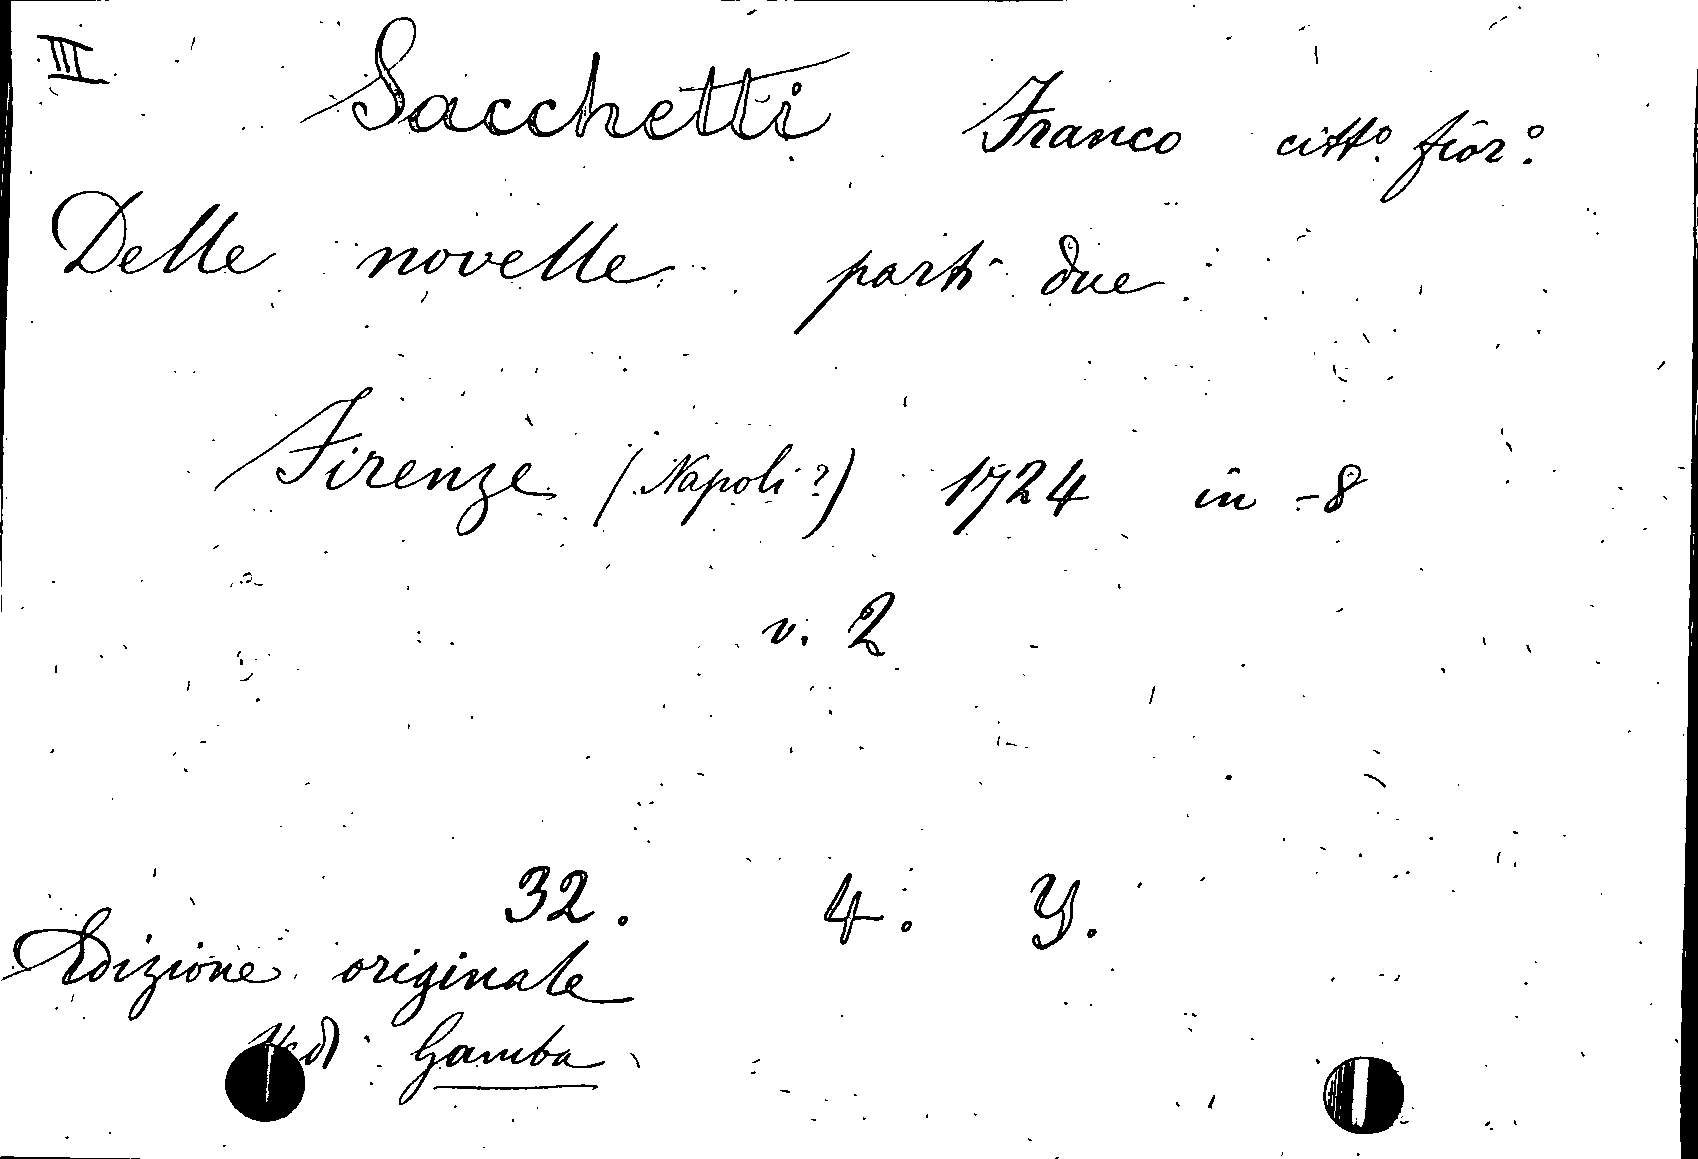 III
Sacchetti Franco citt.º fior.º
Delle novelle parti due
Firenze (Napoli?) 1724 in -8
v. 2
32. 4. Y.
Edizione originale
Gamba